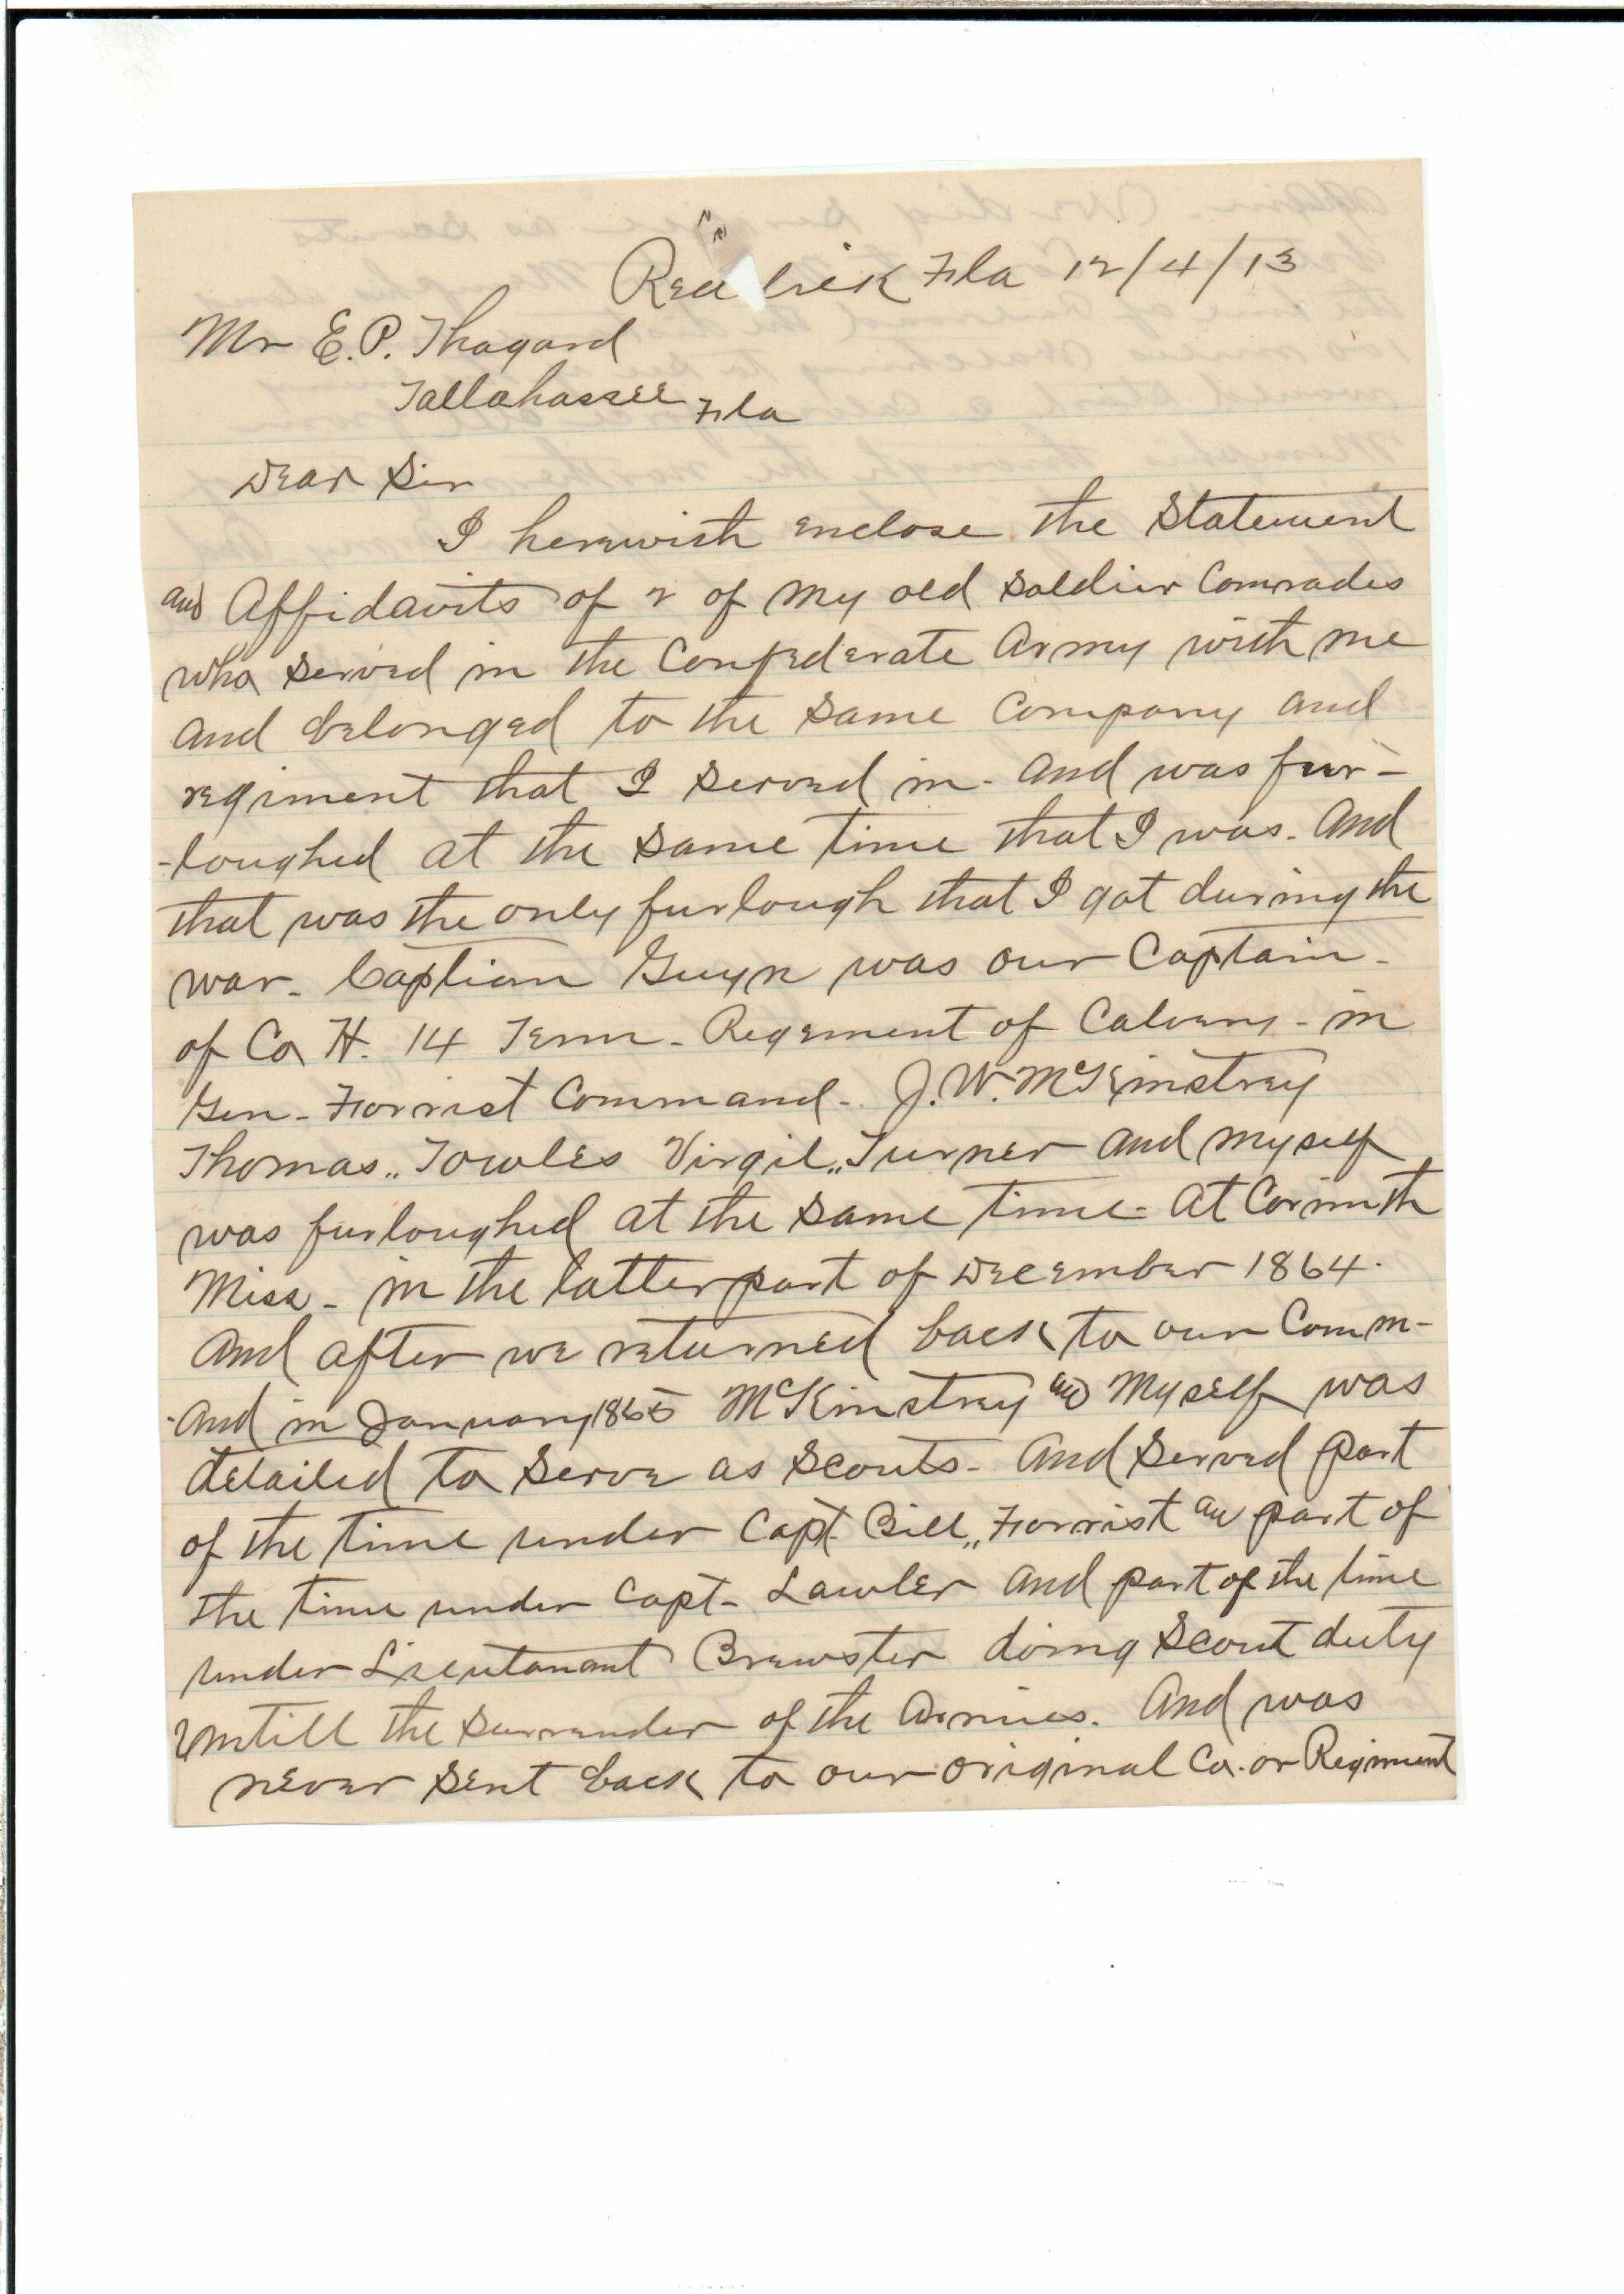 Red lick Fla 12/4/13
Mr E.P. Thagard
Tallahassee Fla
Dear Sir
I herewith enclose the Statement
and Affidavits of 2 of my old Soldier Comrades
who served in the Confederate Army with me
and belonged to the Same Company and
regiment that I Served in - and was fur-
-loughed at the Same time that I was - And
that was the only furlough that I got during the
war - Captian Guyn was our Captain -
of Co H. 14 Tenn - Regement of Calvery - in
Gen - Forrist Command - J.W. McKinstrey
Thomas,, Towles Virgil,, Turner and myself
was furloughed at the Same time - at Corinth
Miss - in the latter part of December 1864.
And after we returned back to our Comm-
-and in January 1865 McKinstrey and Myself was
detailed to Serve as Scouts - And Served part
of the time under Capt. Bill,, Forrist and part of
the time under Capt - Lawler and part of the time
under Lieutanant Brewster doing Scout duty
Untill the Surrender of the Armies. And was
never Sent back to our original Co. or Regiment